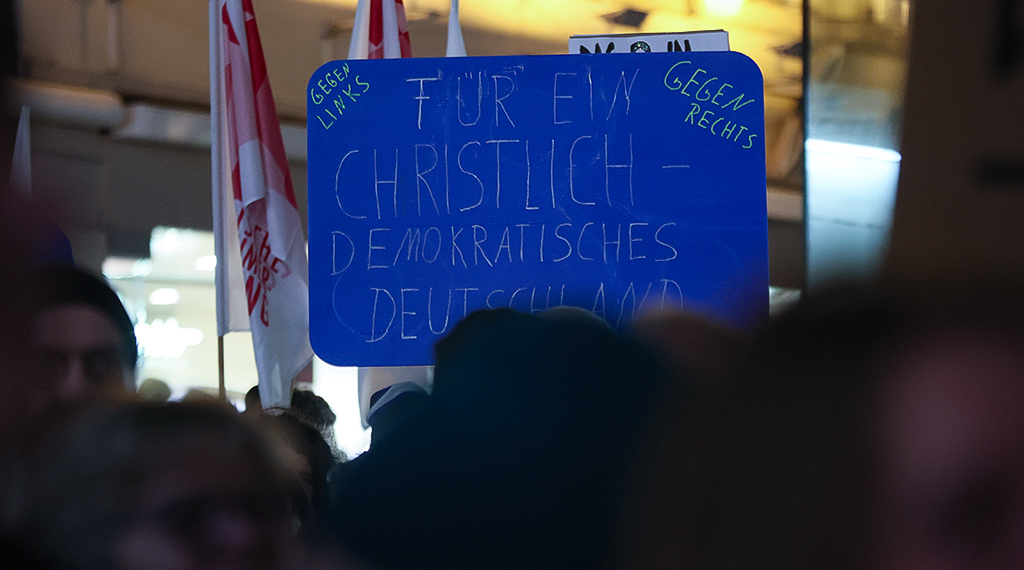 GEGEN
LINKS
FÜR EIN
GEGEN
RECHTS
CHRISTLICH -
DEMOKRATISCHES
DEUTSCHLAND